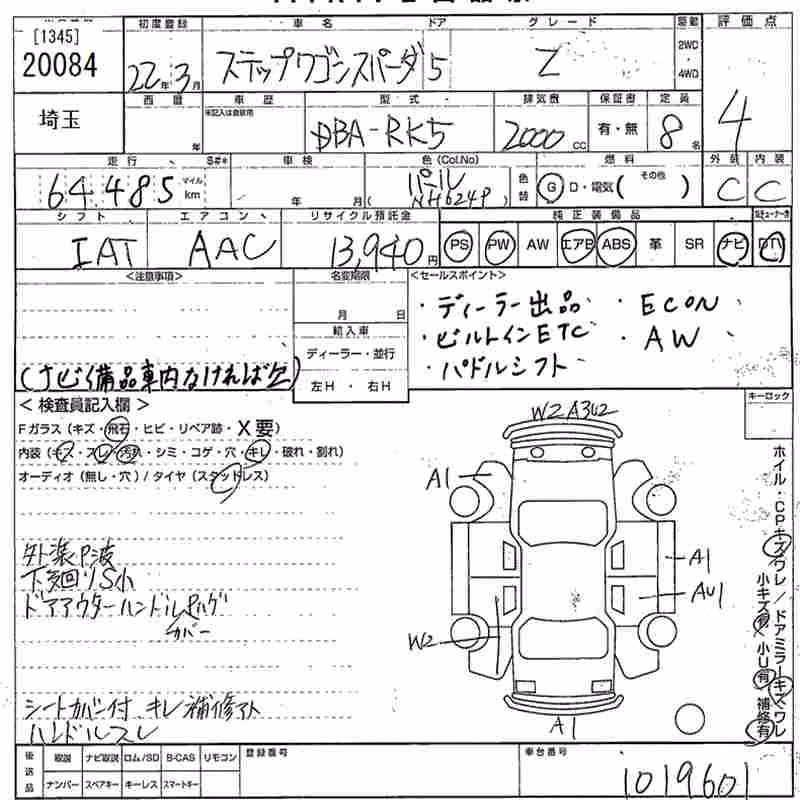 [1345]
20084
埼玉
初度登録 車名 ドア グレード 駆動 評価点
22年3月 ステップワゴンスパーダ 5 Z 2WD・4WD 4
西暦 車歴 型式 排気費 保証書 定員
年 DBA-RK5 2000cc 有・無 8名
走行 S#* 車検 色(Col.No) 燃料 外装 内装
64485 マイル km 年 月 (パール NH624P) 色替 G D・電気( その他 ) C C
シフト エアコン リサイクル預託金 純正装備品
IAT AAC 13,940円 PS PW AW エアB ABS 革 SR ナビ DTV
<注意事項> 名変期限 <セールスポイント>
月 日
・ディーラー出品 ・ECON
輸入車
・ビルトインETC ・AW
ディーラー・並行
・パドルシフト
左H・右H
(ナビ備品車内なければ欠)
<検査員記入欄> キーロック
Fガラス(キズ・飛石・ヒビ・リペア跡・X要)
内装(キズ・スレ・汚れ・シミ・コゲ・穴・キレ・破れ・割れ)
オーディオ(無し・穴)/タイヤ(スタッドレス)
W2 A3U2
A1
A1
AU1
W2
A1
外装P波
下廻りS小
ドアアウターハンドルPハゲ
カバー
シートカバー付 キレ補修アト
ハンドルスレ
ホイル・CPキズワレ/ドアミラーキズワレ
小キズ有 小U有 補修有
後送品 取説 ナビ取説 ロム/SD B-CAS リモコン 登録番号 車台番号
ナンバー スペアキー キーレス スマートキー 1019601